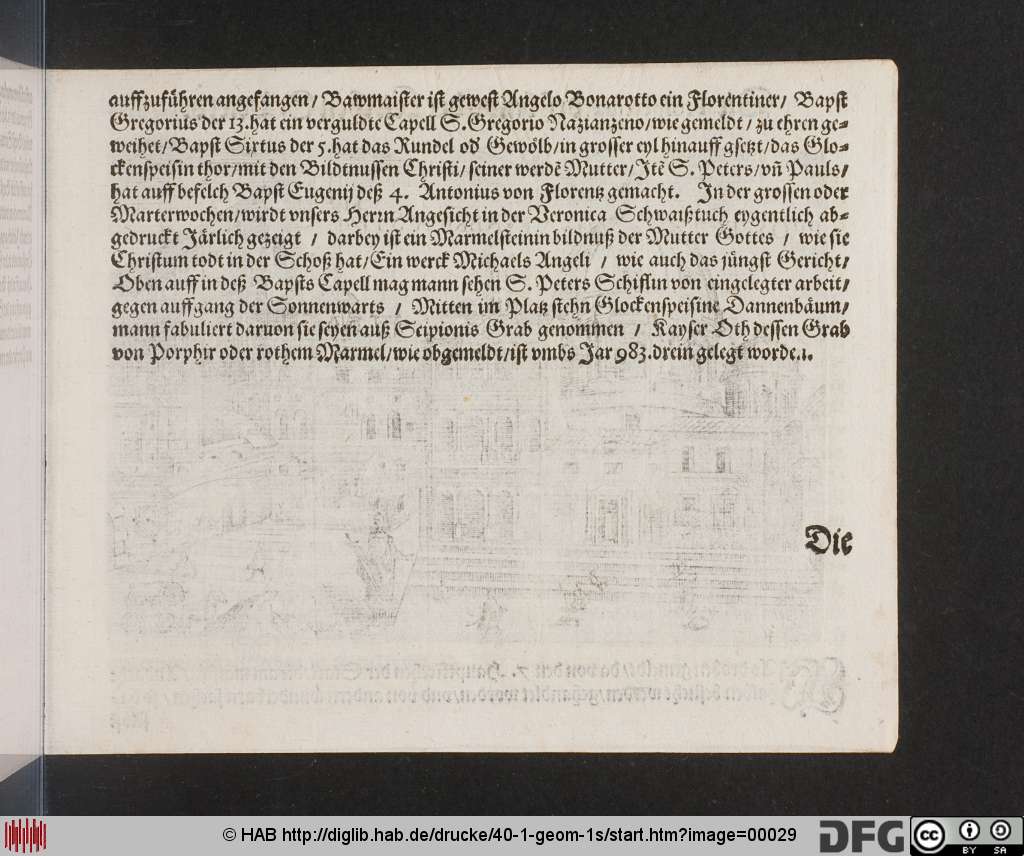 auffzuführen angefangen / Bawmaister ist gewest Angelo Bonarotto ein Florentiner / Bapst
Gregorius der 13. hat ein verguldte Capell S. Gregorio Nazianzeno / wie gemeldt / zu ehren ge=
weihet / Bapst Sixtus der 5. hat das Rundel od' Gewölb / in grosser eyl hinauff gsetzt / das Glo=
ckenspeisin thor / mit den Bildtnussen Christi / seiner werdē Mutter / Itē S. Peters / vñ Pauls /
hat auff befelch Bapst Eugenij deß 4. Antonius von Florentz gemacht. In der grossen oder
Marterwochen / wirdt vnsers Herrn Angesicht in der Veronica Schwaißtuch eygentlich ab=
gedruckt Järlich gezeigt / darbey ist ein Marmelsteinin bildnuß der Mutter Gottes / wie sie
Christum todt in der Schoß hat / Ein werck Michaels Angeli / wie auch das jüngst Gericht /
Oben auff in deß Bapsts Capell mag mann sehen S. Peters Schifflin von eingelegter arbeit /
gegen auffgang der Sonnenwarts / Mitten im Platz stehn Glockenspeisine Dannenbäum /
mann fabuliert daruon sie seyen auß Scipionis Grab genommen / Kayser Oth dessen Grab
von Porphir oder rothem Marmel / wie obgemeldt / ist vmbs Jar 983. drein gelegt worden.
Die
© HAB http://diglib.hab.de/drucke/40-1-geom-1s/start.htm?image=00029
DFG
cc
BY SA